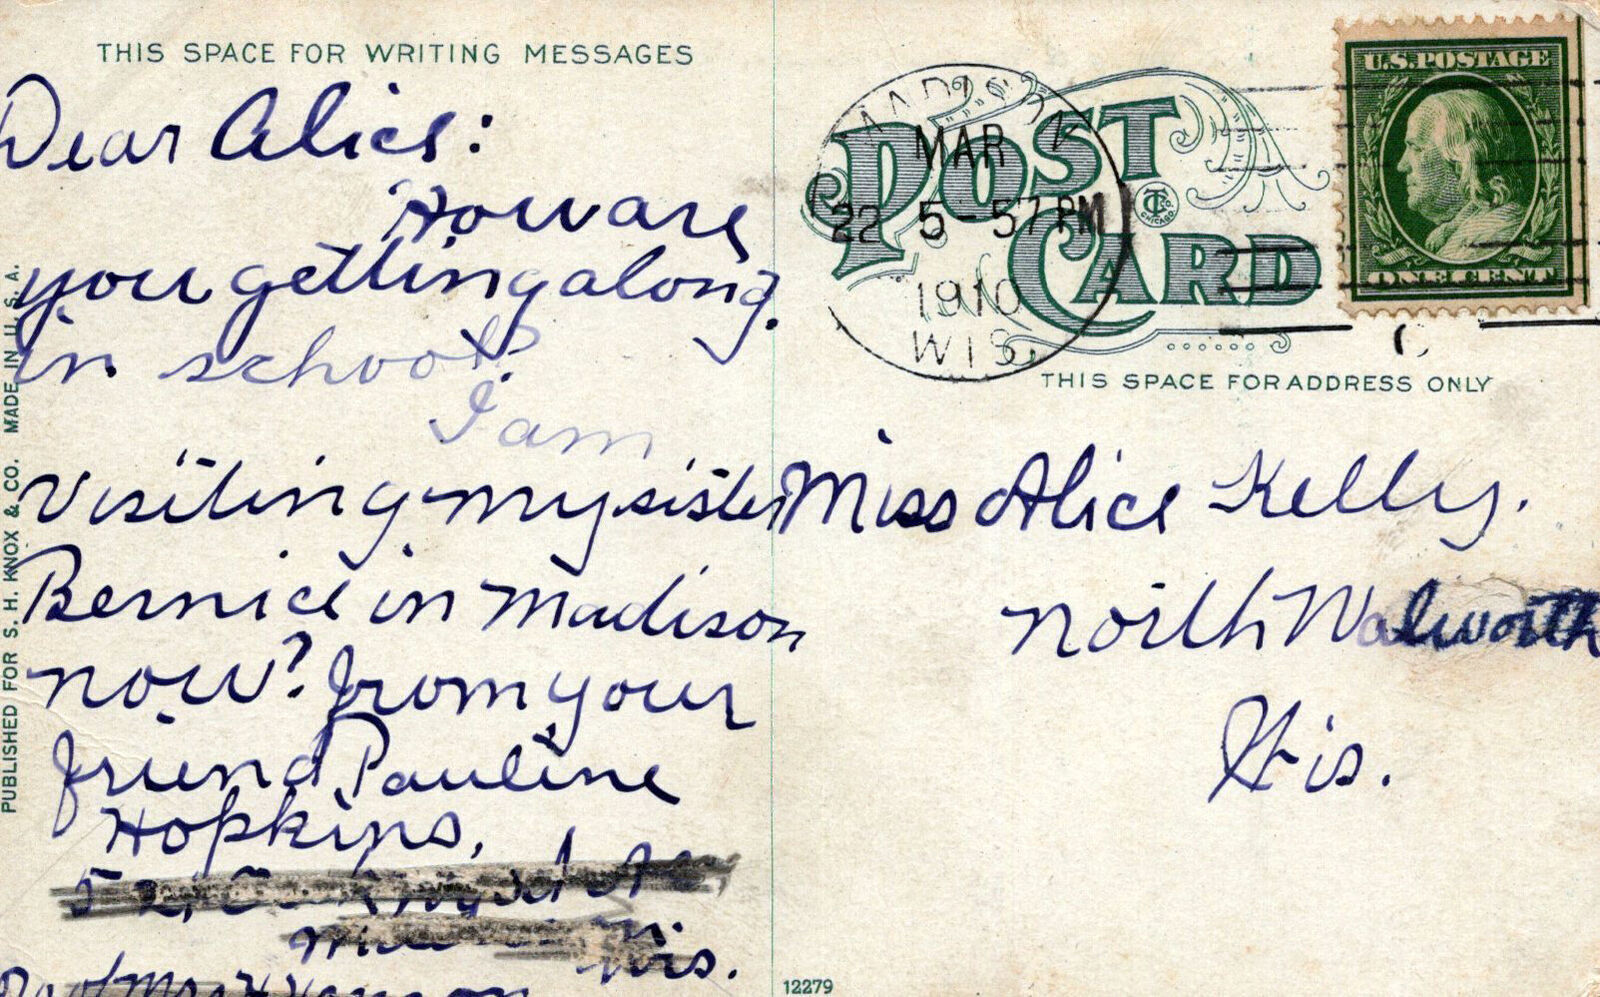 THIS SPACE FOR WRITING MESSAGES
Dear Alice:
How are
you getting along
in school?
I am
visiting my sister
Bernice in Madison
now? from your
friend Pauline
Hopkins,
Wis.
PUBLISHED FOR S. H. KNOX & CO. MADE IN U. S. A.
POST
CARD
MADISON
MAR
22 5-57 PM
1910
WIS.
CHICAGO
U.S. POSTAGE
ONE CENT
THIS SPACE FOR ADDRESS ONLY
Miss Alice Kelly.
North Walworth
Wis.
12279